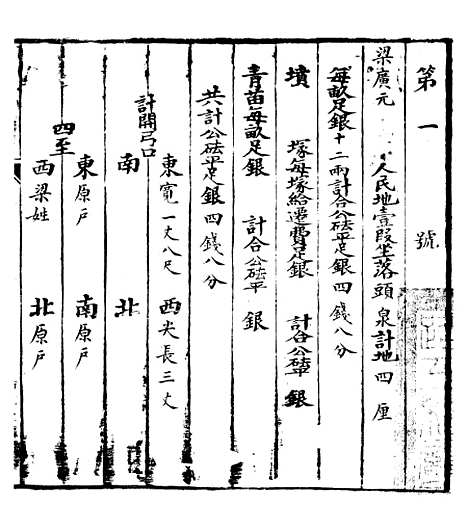 第一號
梁廣元 人民地壹段坐落頭泉計地四厘
每畝足銀十二兩計合公砝平足銀四錢八分
墳 塚每塚給遷費足銀 計合公砝平 銀
青苗每畝足銀 計合公砝平 銀
共計公砝平足銀四錢八分
東寬一丈八尺 西尖長三丈
計開弓口
南 北
東原戶 南原戶
四至
西梁姓 北原戶